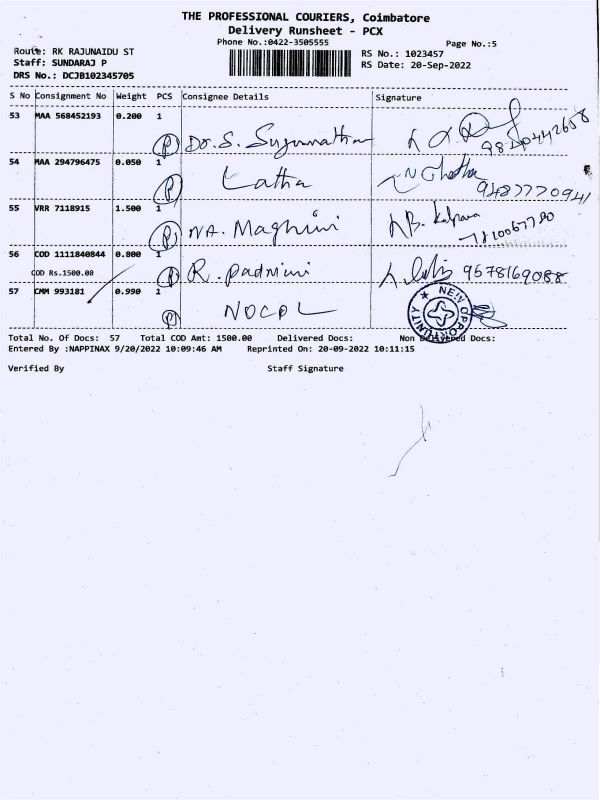 THE PROFESSIONAL COURIERS, Coimbatore
Delivery Runsheet - PCX
Phone No.:0422-3505555
Page No.:5
Route: RK RAJUNAIDU ST
RS No.: 1023457
Staff: SUNDARAJ P
RS Date: 20-Sep-2022
DRS No.: DCJB102345705
S No Consignment No Weight PCS Consignee Details Signature
53 MAA 568452193 0.200 1
P Dr. S.
9840442658
54 MAA 294796475 0.050 1
P Latha
9487770941
55 VRR 7118915 1.500 1
P NA. Maghini B. Kalpana
56 COD 1111840844 0.800 1
COD Rs.1500.00 P R. Padmini 9578169088
57 CMM 993181 0.990 1
P NOCPL
NEW OPPORTUNITY
Total No. Of Docs: 57 Total COD Amt: 1500.00 Delivered Docs: Non Delivered Docs:
Entered By :NAPPINAX 9/20/2022 10:09:46 AM Reprinted On: 20-09-2022 10:11:15
Verified By Staff Signature